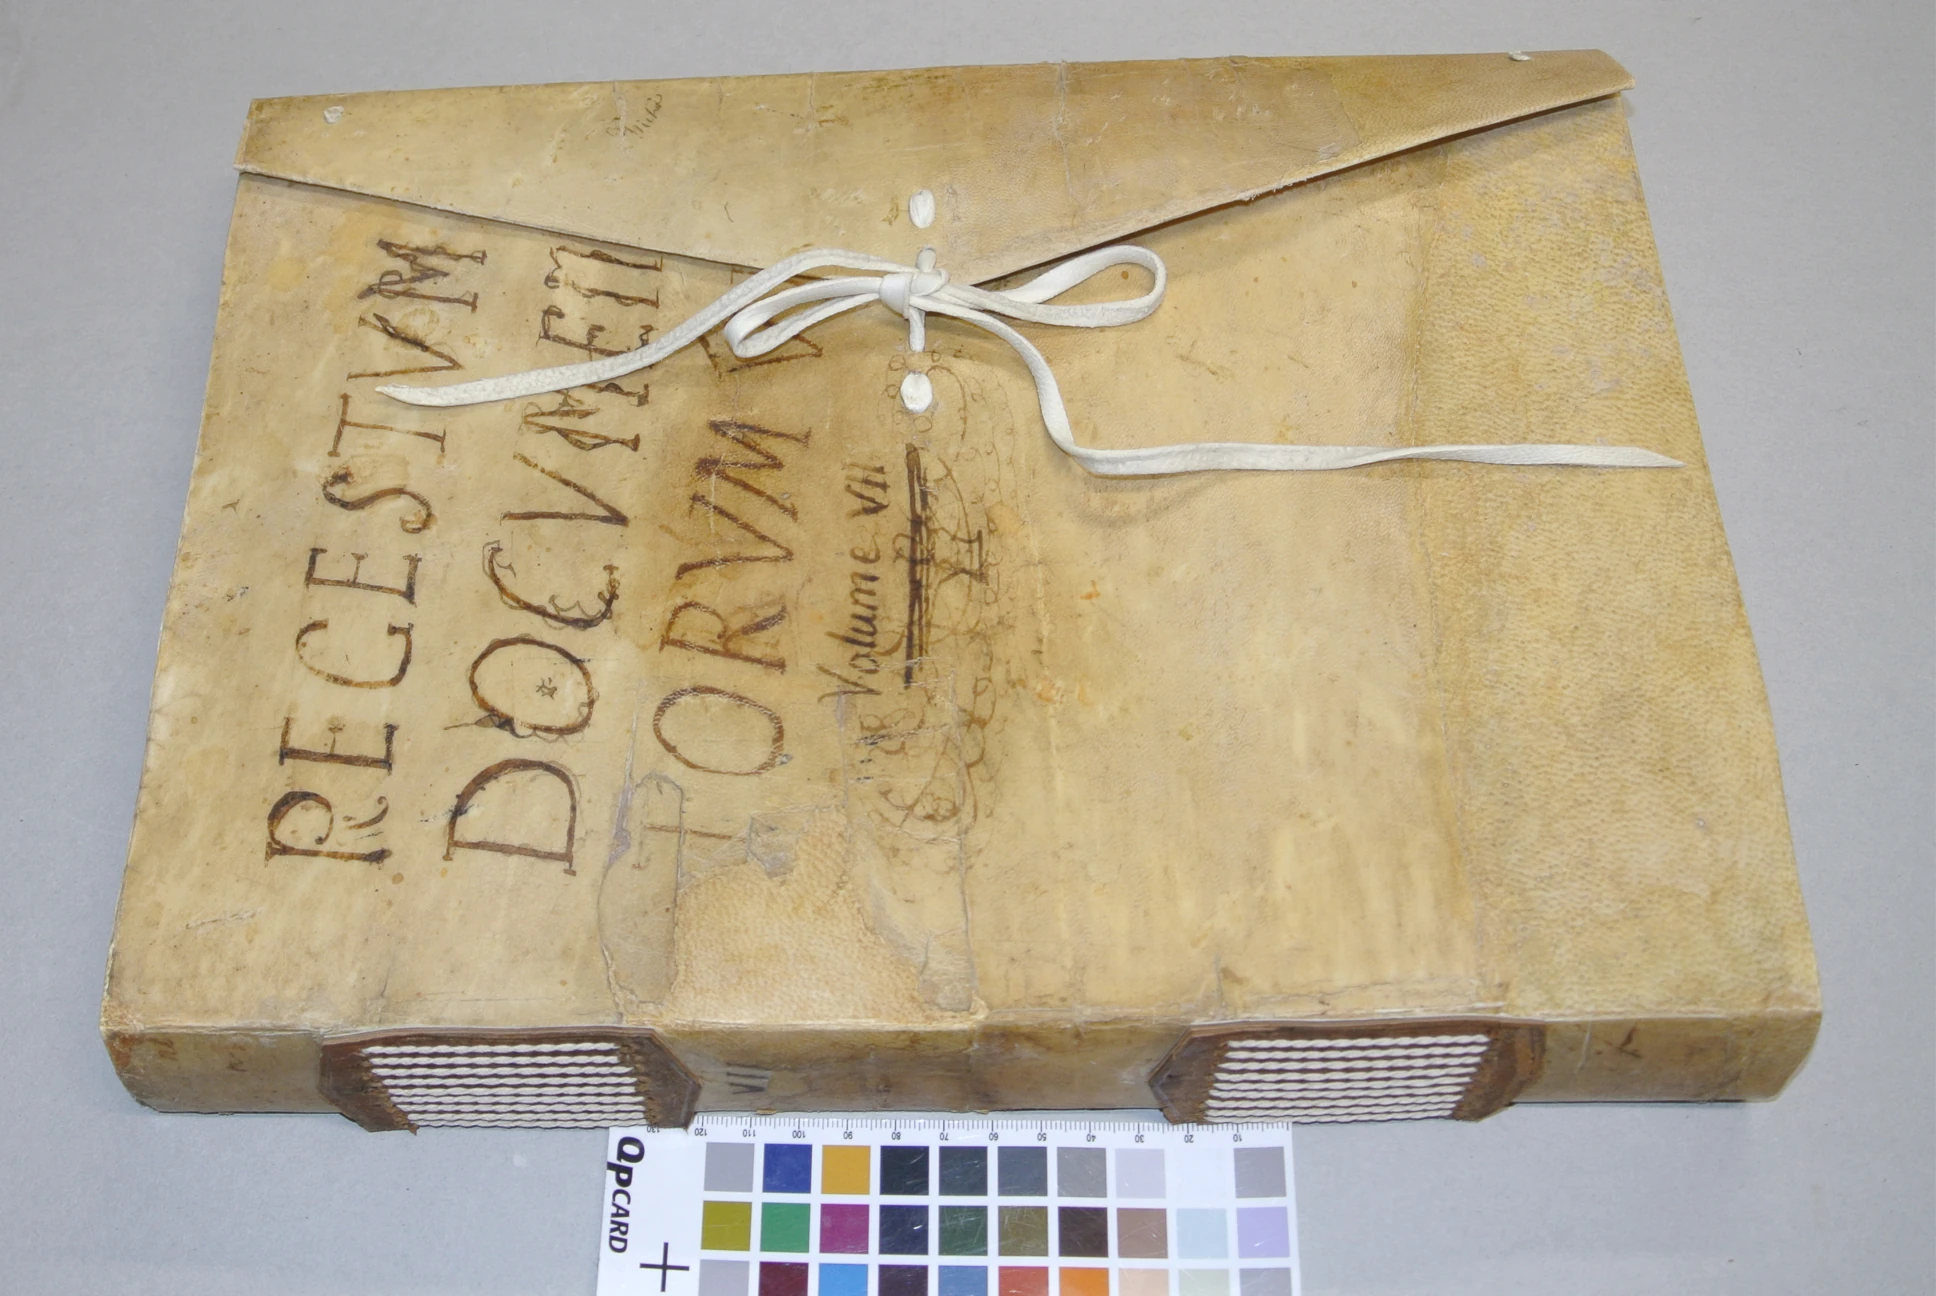 REGESTVM
DOCVMEN
TORVM
Volume VII
VII
QPCARD
130 120 110 100 90 80 70 60 50 40 30 20 10